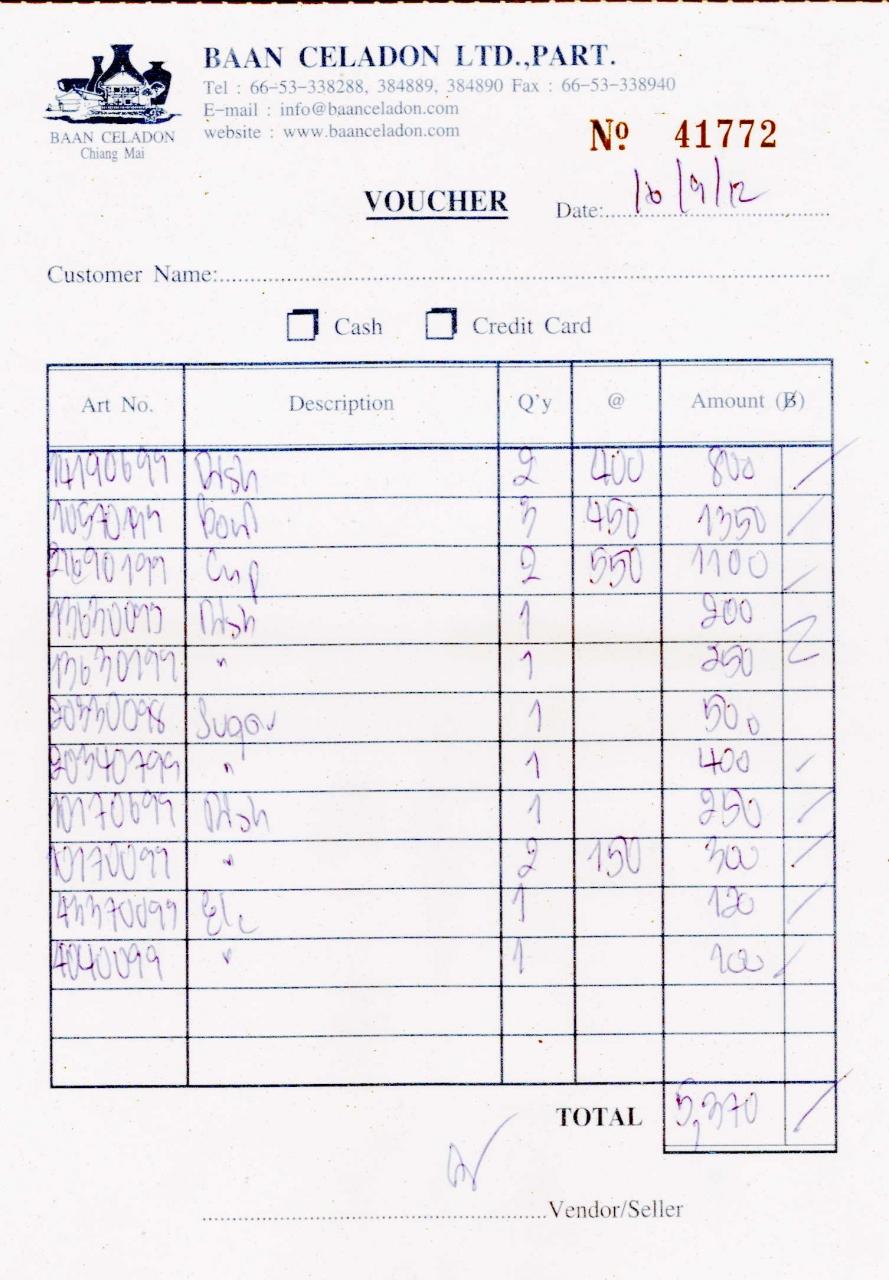 BAAN CELADON LTD.,PART.
Tel : 66-53-338288, 384889, 384890 Fax : 66-53-338940
E-mail : info@baanceladon.com
website : www.baanceladon.com
BAAN CELADON
Chiang Mai
Nº 41772
VOUCHER
Date: 16/9/12
Customer Name:
Cash Credit Card
Art No. Description Q'y @ Amount (B)
14190699 Dish 2 400 800
Bowl 3 450 1350
21690199 Cup 2 550 1100
13630099 Dish 1 200
13630199 " 1 250
20330098 Sugar 1 500
20340799 " 1 400
10170699 Dish 1 250
10170099 " 2 150 300
43370099 Etc 1 120
4040099 " 1 100
TOTAL 5,370
Vendor/Seller